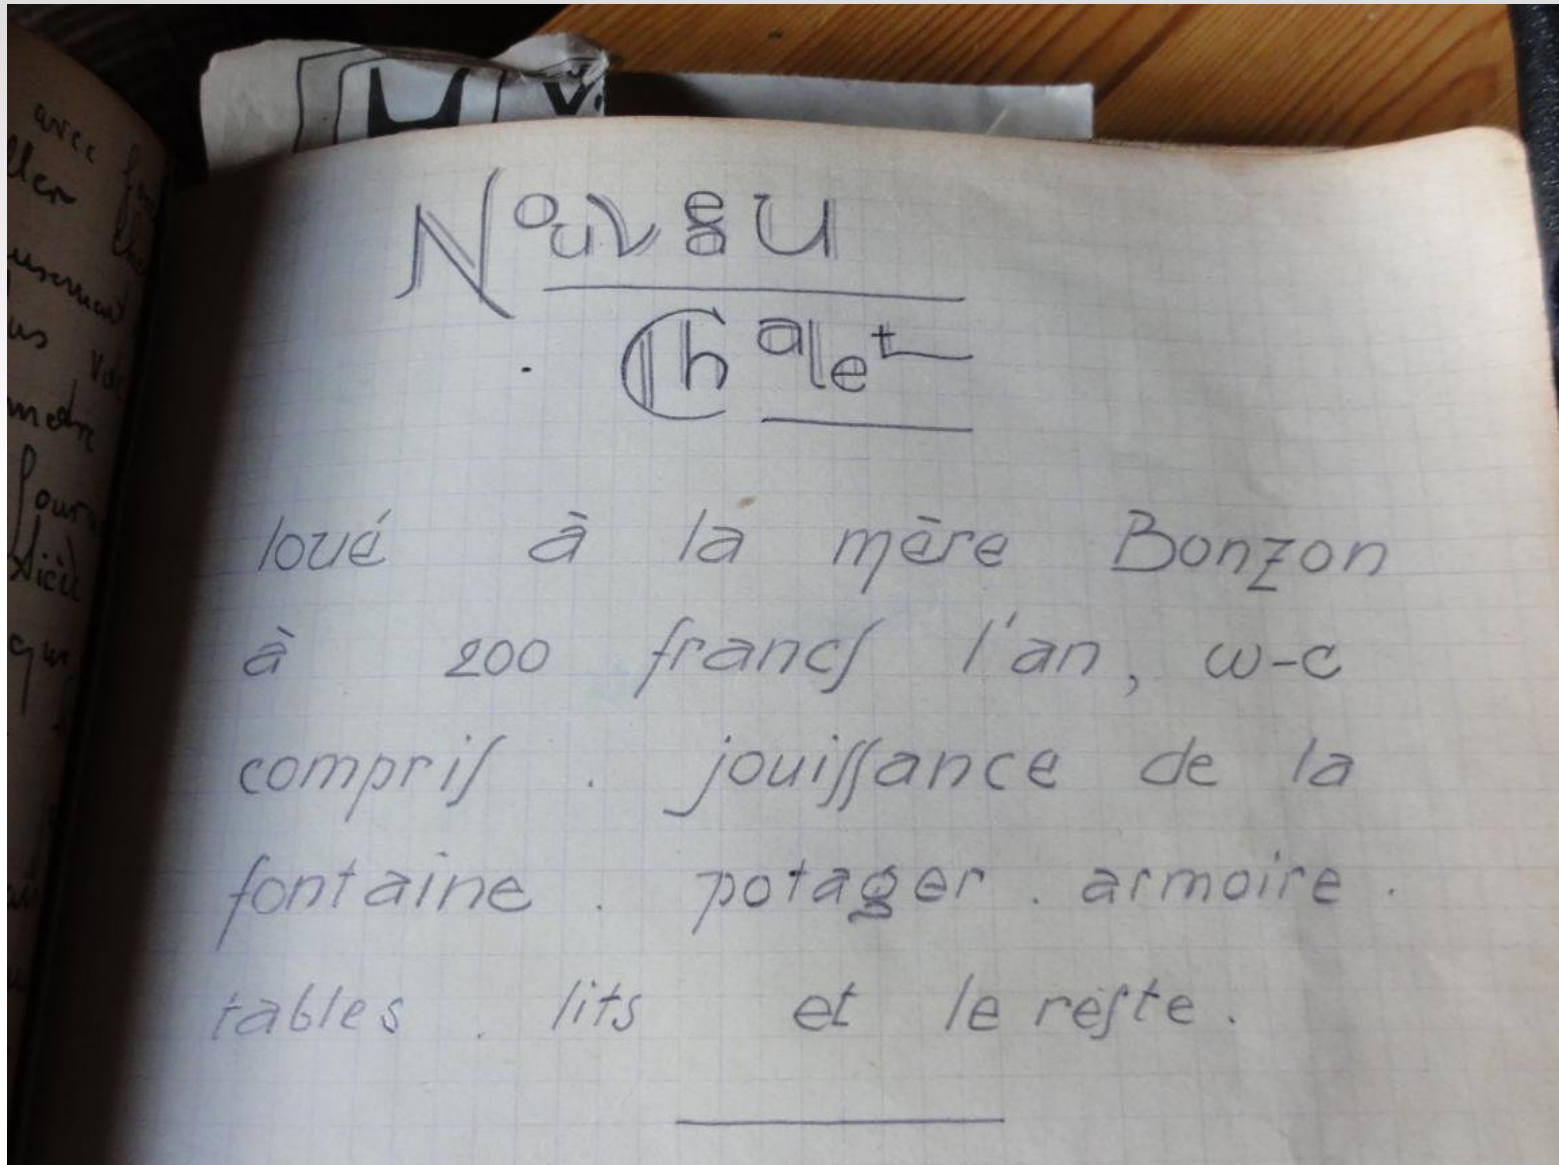 avec
Nouveau
Chalet
loué à la mère Bonzon
à 200 francs l'an, w-c
compris . jouissance de la
fontaine . potager . armoire .
tables . lits et le reste .